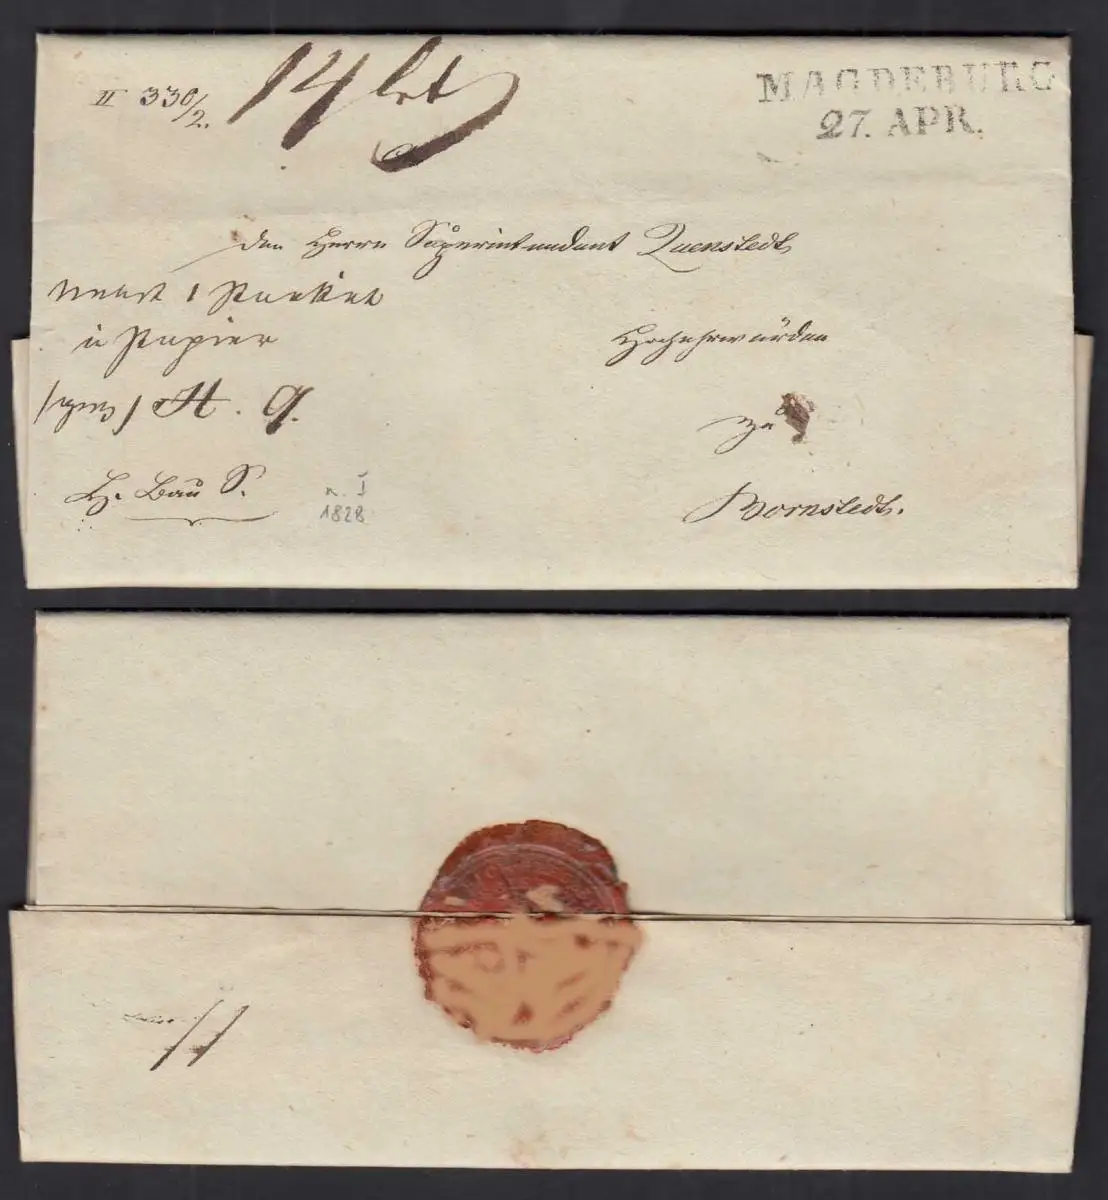 II 330/2.
14 lot
MAGDEBURG
27. APR.
den Herrn Superintendent Quenstedt
nebst 1 Packet
in Papier
Hochehrwürden
/gez/ H. G.
zu
H. Bau S.
n. I
1828
Bornstedt.